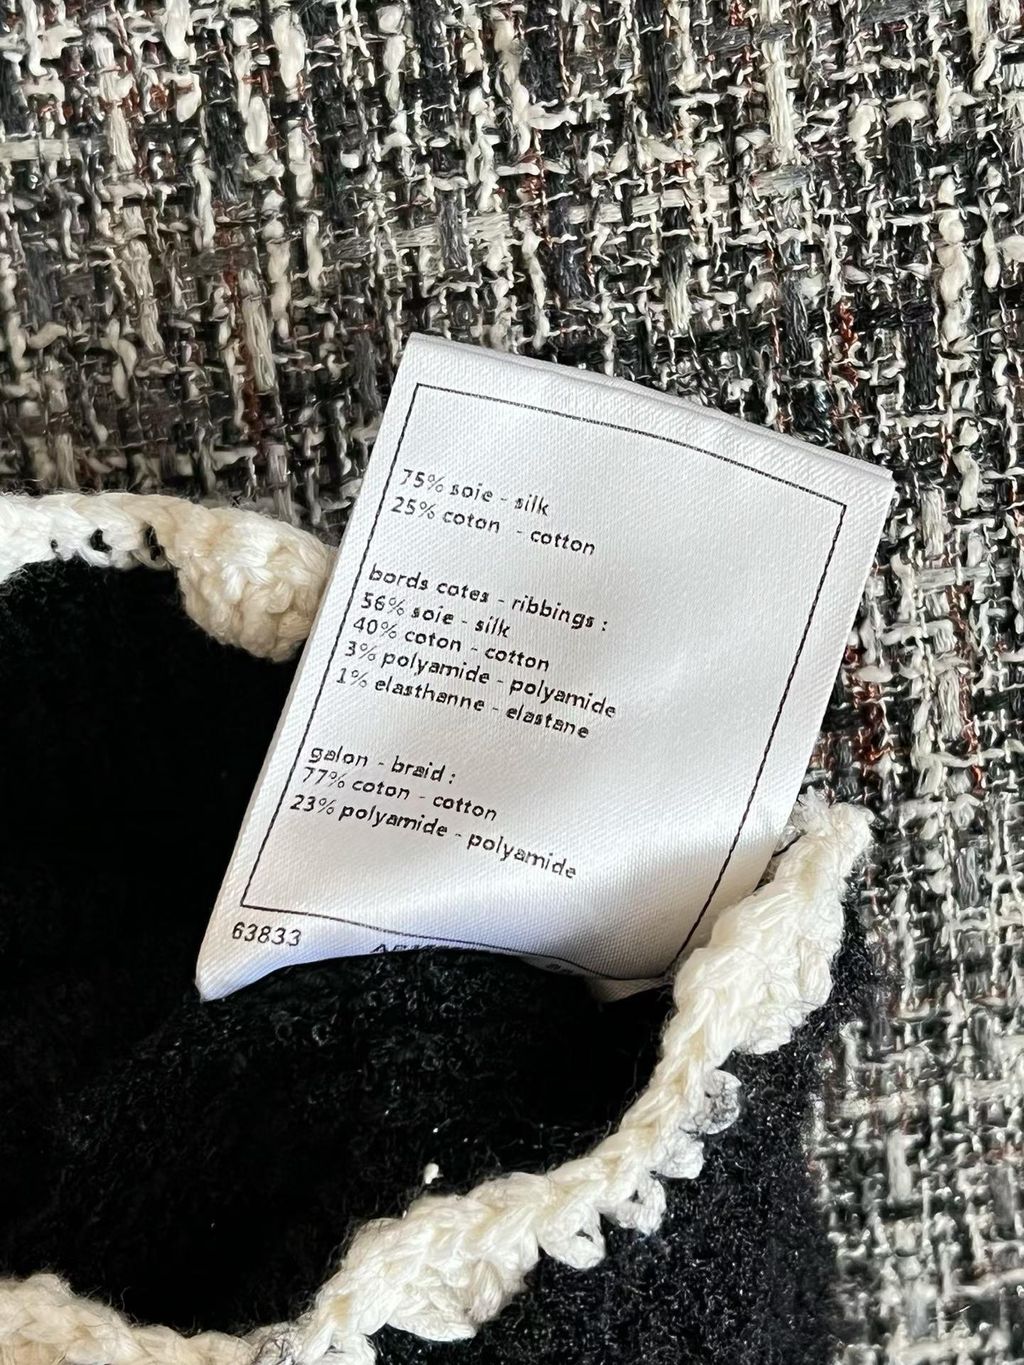 75% soie - silk
25% coton - cotton
bords cotes - ribbings :
56% soie - silk
40% coton - cotton
3% polyamide - polyamide
1% elasthanne - elastane
galon - braid :
77% coton - cotton
23% polyamide - polyamide
63833